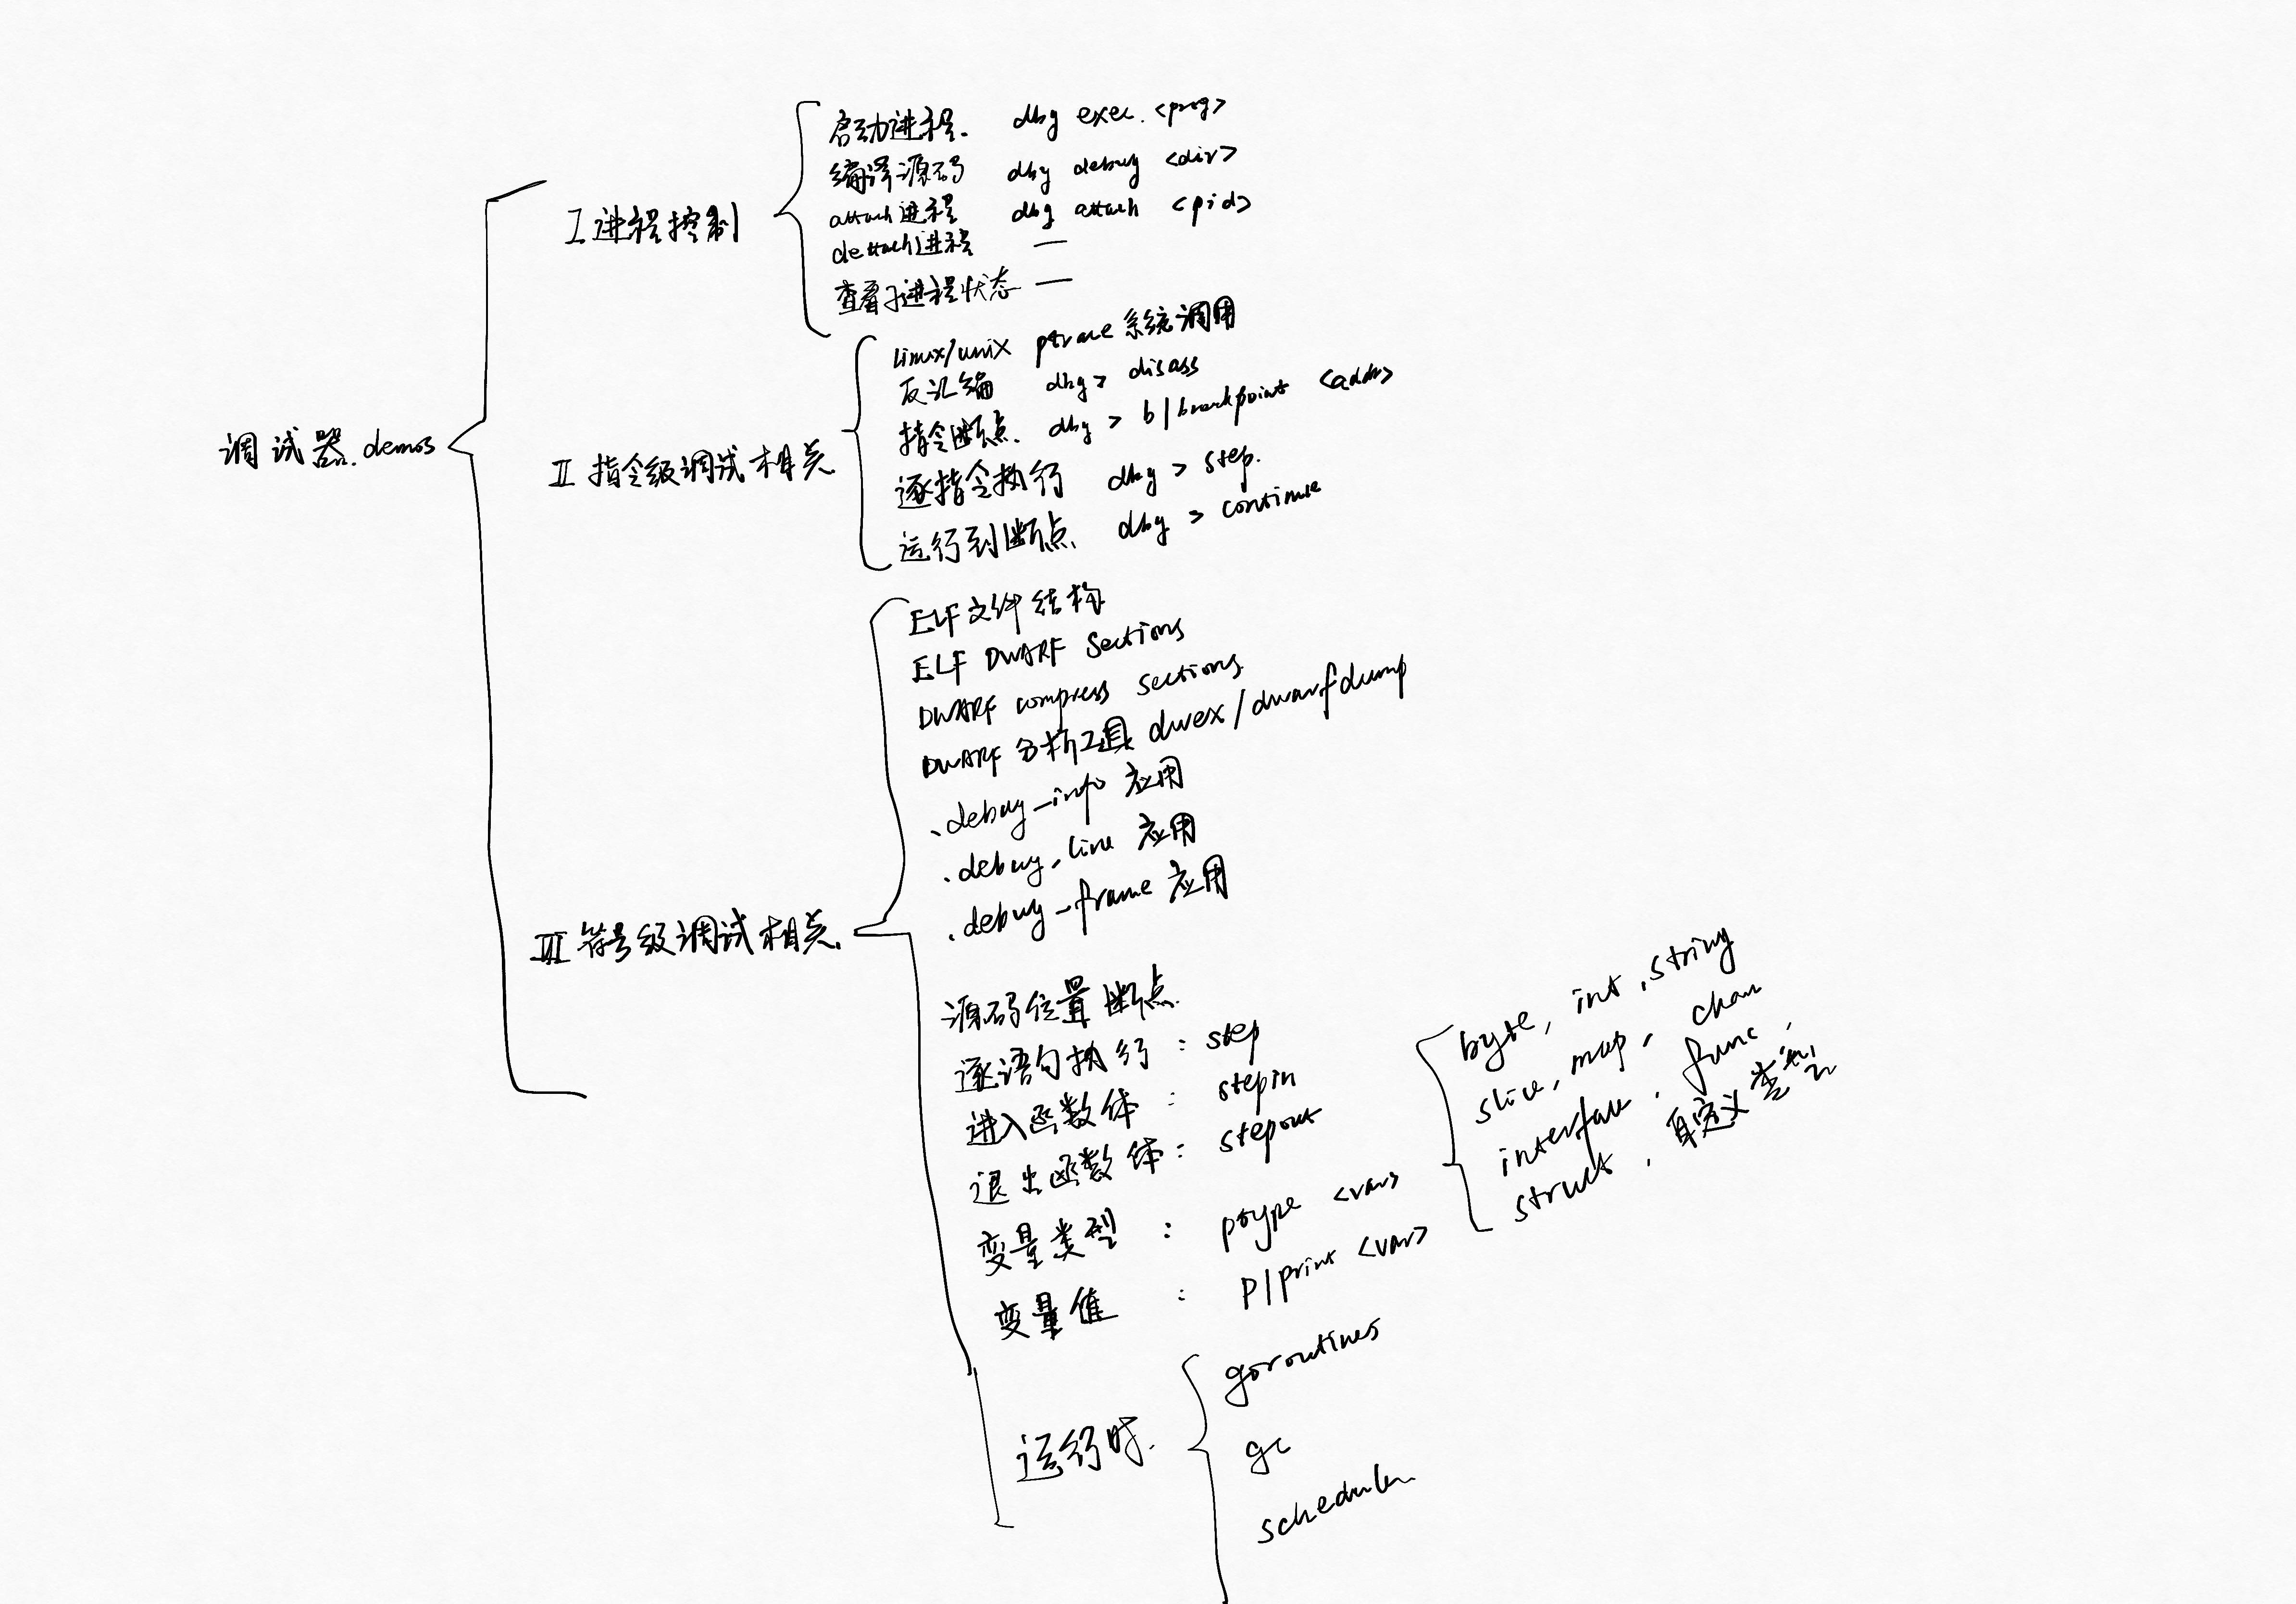 调试器.demos
I 进程控制
启动进程. dbg exec. <prog>
编译源码 dbg debug <dir>
attach进程 dbg attach <pid>
dettach进程 —
查看子进程状态 —
II 指令级调试相关
linux/unix ptrace 系统调用
反汇编 dbg> disass
指令断点. dbg > b/breakpoint <addr>
逐指令执行 dbg > step.
运行到断点. dbg > continue
III 符号级调试相关.
ELF文件结构
ELF DWARF Sections
DWARF compress sections.
DWARF 分析工具 dwex/dwarfdump
.debug_info 应用
.debug_line 应用
.debug_frame 应用
源码位置断点.
逐语句执行 : step
进入函数体 : stepin
退出函数体 : stepout
变量类型 : ptype <var>
变量值 : p/print <var>
byte, int, string
slice, map, chan
interface, func,
struct, 自定义类型
运行时.
goroutines
gc
scheduler